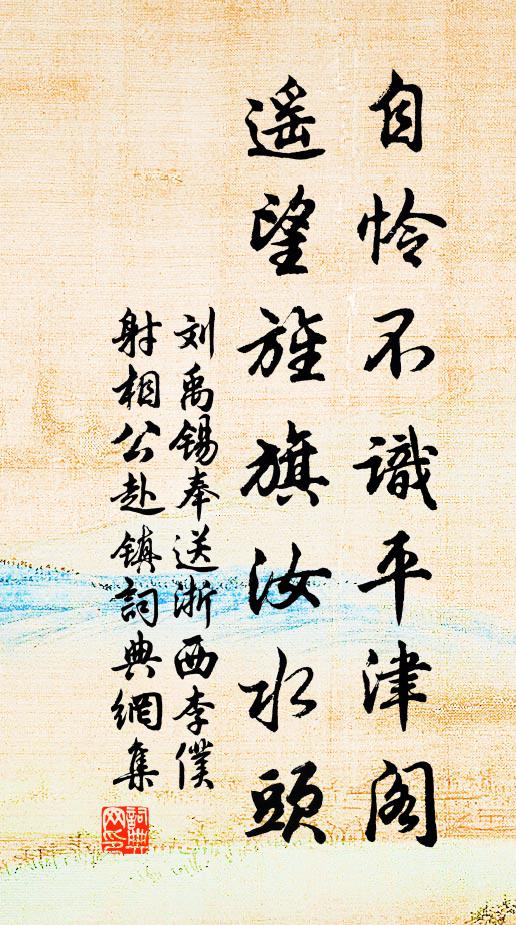 自怜不識平津阁
遥望旌旗汝水頭
刘禹锡奉送浙西李僕
射相公赴镇詞典網集
詞典
网印